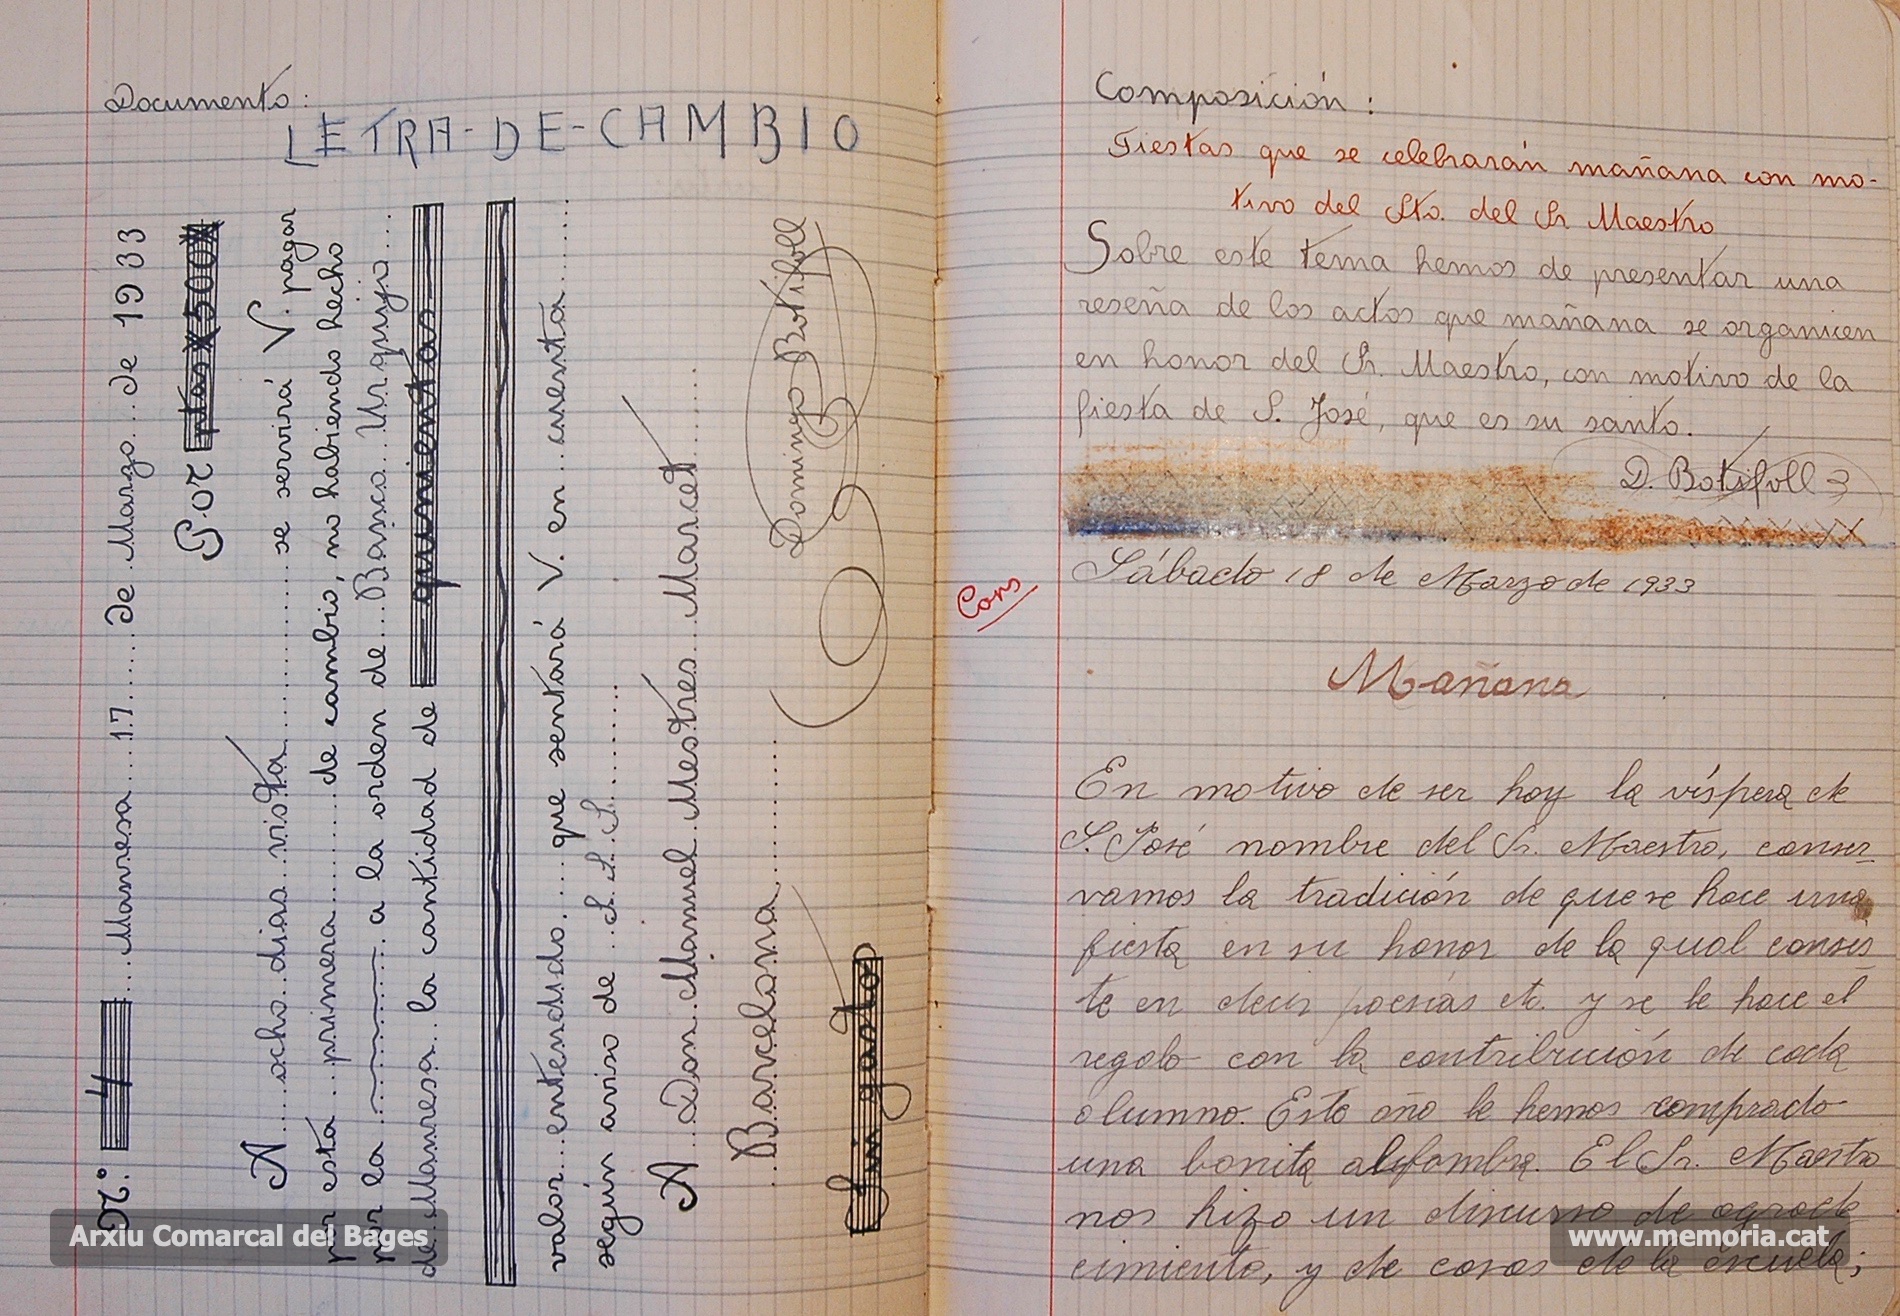 Documento:
LETRA-DE-CAMBIO
N.º 4 ... Manresa ... 17 ... de Marzo ... de 1933
Por ptas X 500 X
A ... ocho dias vista ... se servirá V. pagar
por esta ... primera ... de cambio, no habiendo hecho
por la ... a la orden de ... Banco Urquijo ...
de Manresa ... la cantidad de quinientas
valor ... entendido ... que sentará V. en cuenta
según aviso de ... S. S. S.
A ... Don Manuel Mestres Marcet
... Barcelona ...
Sin gasto
Domingo Botifoll
Composición:
Fiestas que se celebrarán mañana con mo-
tivo del Sto. del Sr Maestro
Sobre este tema hemos de presentar una
reseña de los actos que mañana se organicen
en honor del Sr. Maestro, con motivo de la
fiesta de S. José, que es su santo.
D. Botifoll
Sábado 18 de Marzo de 1933
Cors
Mañana
En motivo de ser hoy la víspera de
S. José nombre del Sr. Maestro, conser-
vamos la tradición de que se hace una
fiesta en su honor de la qual consis-
te en decir poesías etc. y se le hace el
regalo con la contribución de cada
alumno. Este año le hemos comprado
una bonita alfombra. El Sr. Maestro
nos hizo un discurso de agrade
cimiento, y de cosas de la escuela;
Arxiu Comarcal del Bages
www.memoria.cat